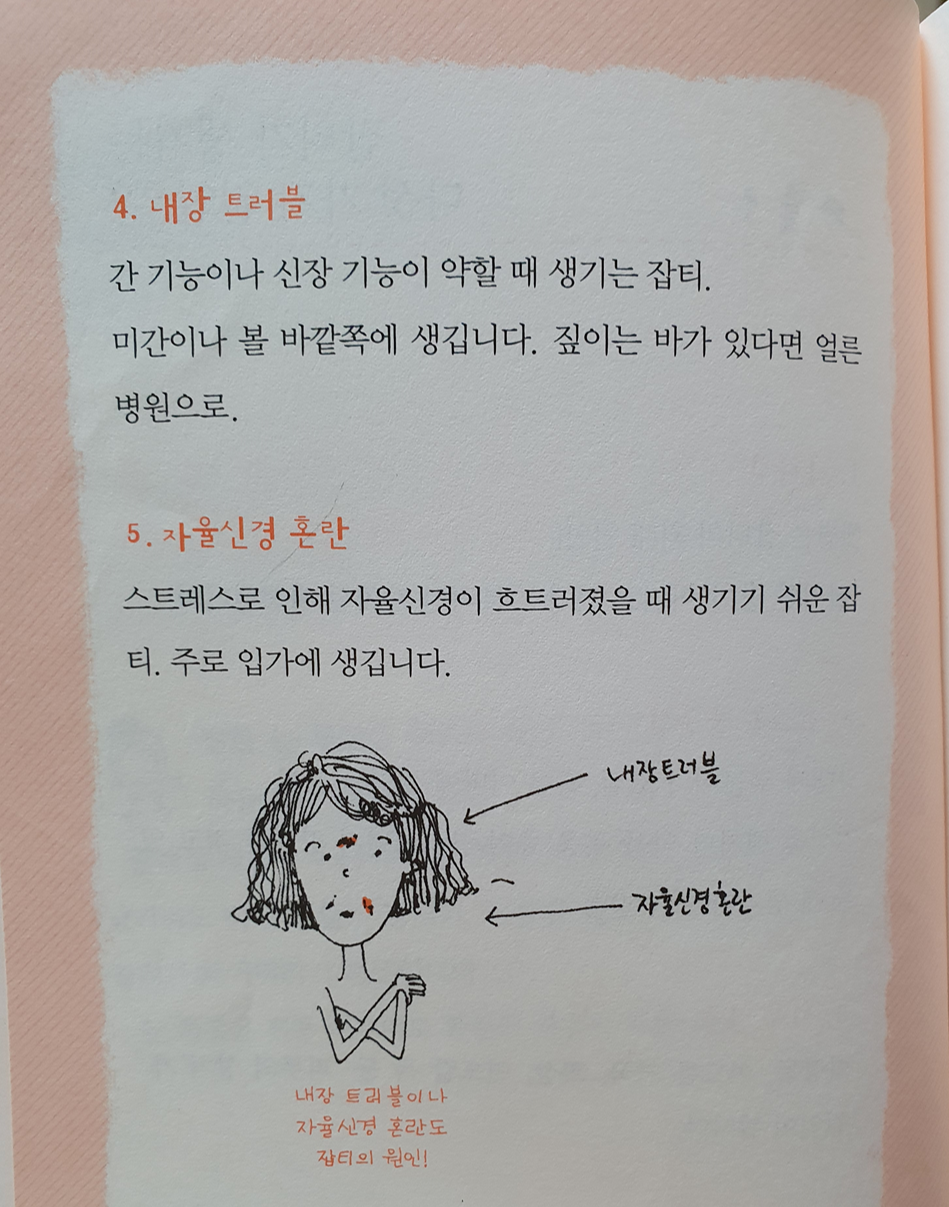 4. 내장 트러블
간 기능이나 신장 기능이 약할 때 생기는 잡티.
미간이나 볼 바깥쪽에 생깁니다. 짚이는 바가 있다면 얼른
병원으로.
5. 자율신경 혼란
스트레스로 인해 자율신경이 흐트러졌을 때 생기기 쉬운 잡
티. 주로 입가에 생깁니다.
내장트러블
자율신경혼란
내장 트러블이나
자율신경 혼란도
잡티의 원인!